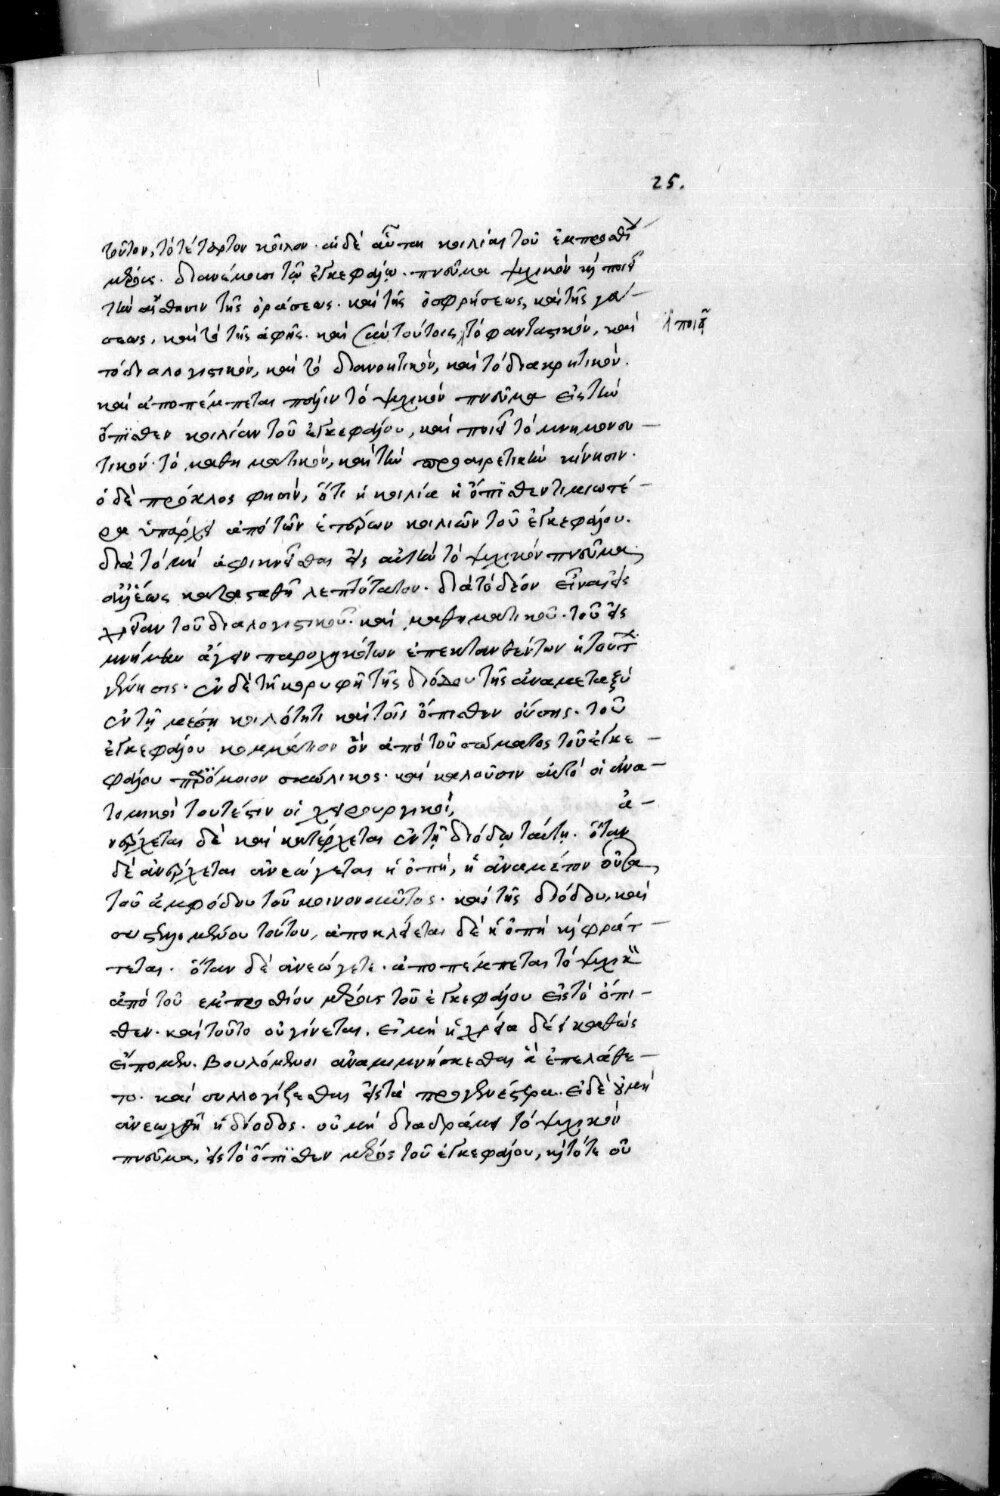 25.
τοῦτον, τὸ τέταρτον κοῖλον. αἱ δὲ αὗται κοιλίαι τοῦ ἔμπροσθεν
μέρους. διανέμουσι τῷ ἐγκεφάλῳ. πνεῦμα ψυχικόν καὶ ποιεῖ
τὴν αἴσθησιν τῆς ὁράσεως. καὶ τῆς ὀσφρήσεως, καὶ τῆς γεύ-
σεως, καὶ τῆς ἀφῆς. καὶ σὺν τούτοις τὸ φανταστικόν, καὶ
ποιεῖ
τὸ διαλογιστικόν, καὶ τὸ διανοητικόν, καὶ τὸ διακριτικόν.
καὶ ἀποπέμπεται πάλιν τὸ ψυχικόν πνεῦμα εἰς τὴν
ὄπισθεν κοιλίαν τοῦ ἐγκεφάλου, καὶ ποιεῖ τὸ μνημονευ-
τικόν. τὸ μαθηματικόν, καὶ τὴν προαιρετικὴν κίνησιν.
ὁ δὲ πρόκλος φησίν, ὅτι ἡ κοιλία ἡ ὄπισθεν τιμιωτέ-
ρα ὑπάρχει ἀπὸ τῶν ἑτέρων κοιλιῶν τοῦ ἐγκεφάλου.
διὰ τὸ μὴ ἀφικνεῖσθαι εἰς αὐτὴν τὸ ψυχικόν πνεῦμα,
κατασταθῇ λεπτότατον. διὰ τὸ δέον εἶναι εἰς
χρείαν τοῦ διαλογιστικοῦ. καὶ μαθηματικοῦ. τοῦ εἰς
μνήμην ἄγειν παρῳχηκότων
γέννησις. ἐν δὲ τῇ κορυφῇ τῆς διόδου τῆς ἀναμεταξὺ
ἐν τῇ μέσῃ κοιλότητι καὶ τοῖς ὄπισθεν οὔσης. τοῦ
ἐγκεφάλου κομμάτιον ὂν ἀπὸ τοῦ σώματος τοῦ ἐγκε-
φάλου παρόμοιον σκώληκος. καὶ καλοῦσιν αὐτὸ οἱ ἀνα-
τομικοὶ τουτέστιν οἱ χειρουργικοί, ἀ-
νέρχεται δὲ καὶ κατέρχεται ἐν τῇ διόδῳ ταύτῃ. ὅταν
δὲ ἀνέρχεται ἀνεώγεται ἡ ὀπή, ἡ ἀναμέσον οὖσα
τοῦ ἀμφόδου τοῦ κοινονοκῦτος. καὶ τῆς διόδου, καὶ
τούτου, ἀποκλείεται δὲ ἡ ὀπὴ καὶ φράτ-
τεται. ὅταν δὲ ἀνεώγετε. ἀποπέμπεται τὸ ψυχικὸν
ἀπὸ τοῦ ἐμπροσθίου μέρους τοῦ ἐγκεφάλου εἰς τὸ ὄπι-
σθεν. καὶ τοῦτο οὐ γίνεται. εἰ μὴ ἡ χρεία δέει καθὼς
εἴπομεν. βουλόμενοι ἀναμιμνήσκεσθαι ἃ ἐπελάθε-
το. καὶ συλλογίζεσθαι εἰς τὰ προγενέστερα. εἰ δὲ οὐ μὴ
ἀνεωχθῇ ἡ δίοδος. οὐ μὴ διαδράμῃ τὸ ψυχικὸν
πνεῦμα, εἰς τὸ ὄπισθεν μέρος τοῦ ἐγκεφάλου, καὶ τότε οὐ